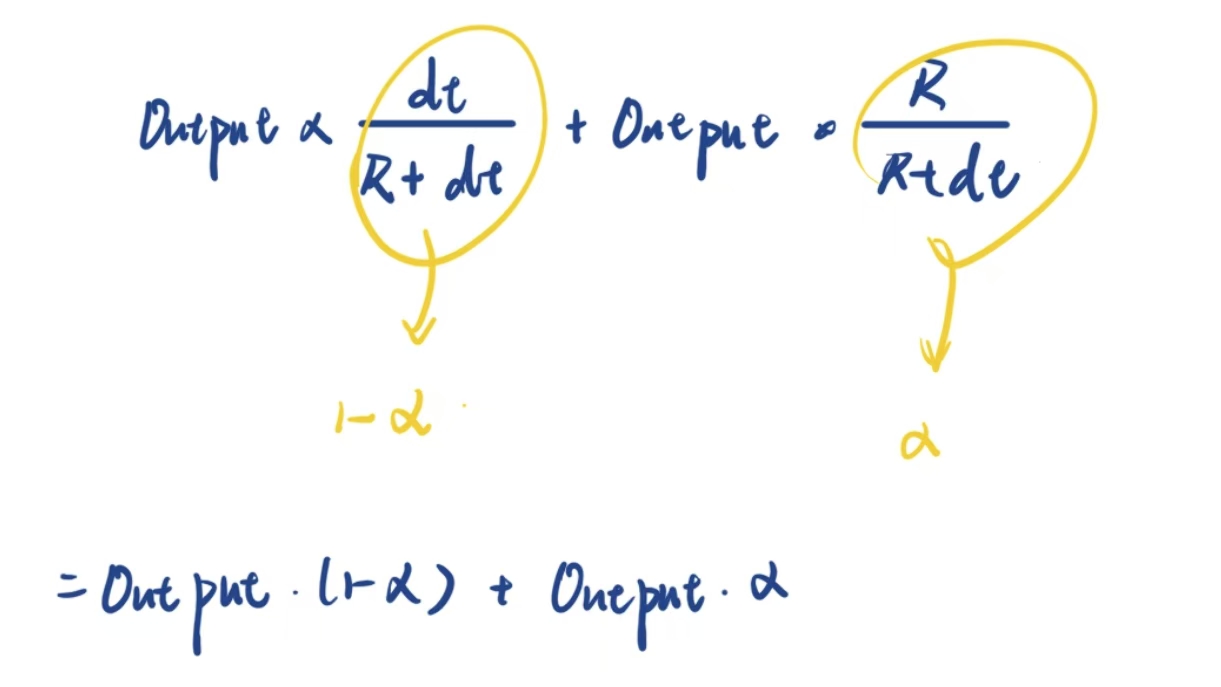 Output α dt/(R + dt) + Output · R/(R+dt)
1-α
α
= Output · (1-α) + Output · α